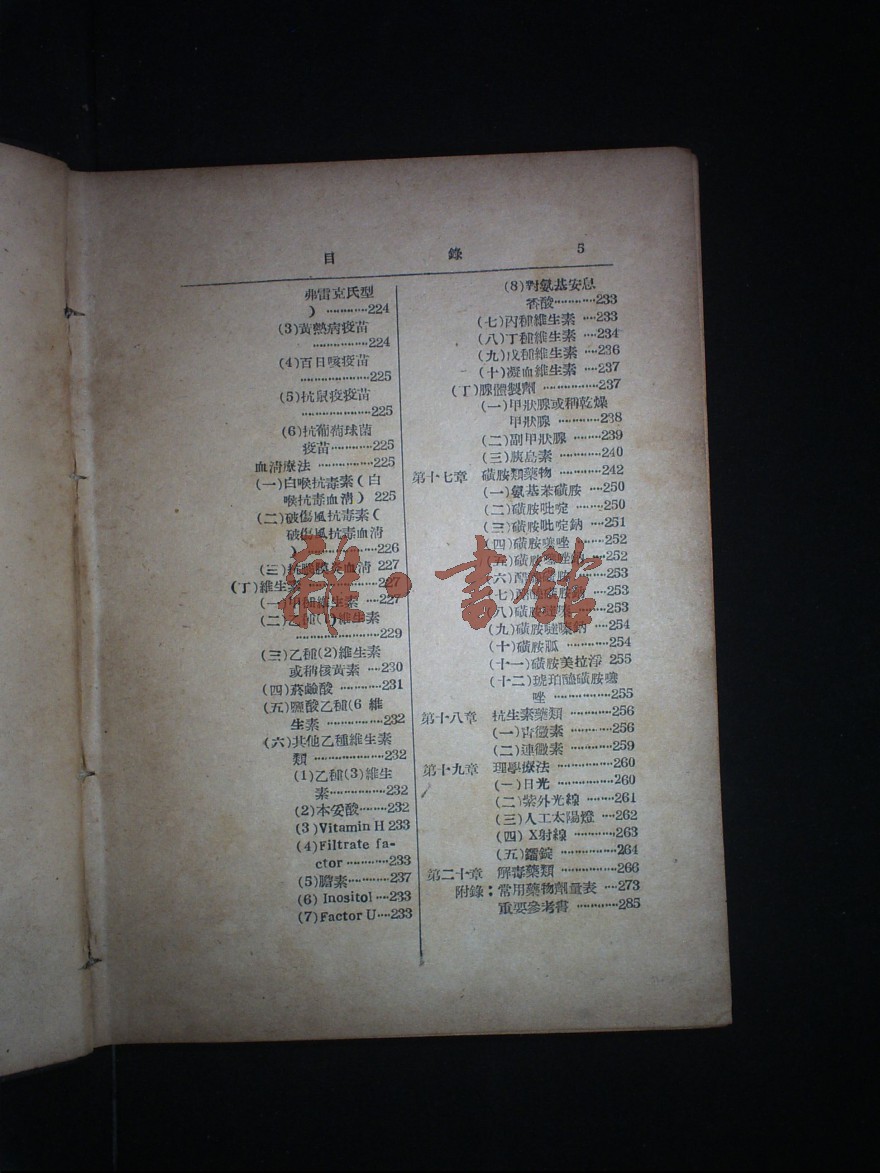 目 錄 5
弗雷克氏型
) ············224
(3)黃熱病疫苗
·····················224
(4)百日咳疫苗
··················225
(5)抗鼠疫疫苗
·····················225
(6)抗葡萄球菌
疫苗············225
血淸療法 ···············225
(一)白喉抗毒素(白
喉抗毒血淸) 225
(二)破傷風抗毒素(
破傷風抗毒血淸
) ·····················226
(三) 血淸 227
(丁)維生素 ··················227
(一)甲種維生素 ····227
(二)乙種(1)維生素
························229
(三)乙種(2)維生素
或稱核黃素 ····230
(四)菸鹼酸 ············231
(五)鹽酸乙種(6 維
生素 ···············232
(六)其他乙種維生素
類 ·····················232
(1)乙種(3)維生
素··················232
(2)本妥酸·········232
(3)Vitamin H 233
(4)Filtrate fa-
ctor ············233
(5)膽素············237
(6) Inositol ····233
(7)Factor U····233
(8)對氨基安息
香酸············233
(七)丙種維生素 ····233
(八)丁種維生素 ····234
(九)戊種維生素 ····236
(十)凝血維生素 ····237
(丁)腺體製劑 ···············237
(一)甲狀腺或稱乾燥
甲狀腺 ············238
(二)副甲狀腺 ·········239
(三)胰島素 ············240
第十七章 磺胺類藥物 ············242
(一)氨基苯磺胺 ····250
(二)磺胺吡啶 ·········250
(三)磺胺吡啶鈉 ····251
(四)磺胺噻唑 ·········252
(五)磺胺噻唑鈉 ····252
(六) 磺胺 ····253
(七) 磺胺鈉 ····253
(八)磺胺嘧 ····253
(九)磺胺嘧 鈉 ····254
(十)磺胺胍 ············254
(十一)磺胺美拉淨 255
(十二)琥珀醯磺胺噻
唑 ···············255
第十八章 抗生素藥類 ············256
(一)靑黴素 ············256
(二)連黴素 ············259
第十九章 理學療法 ···············260
(一)日光 ···············260
(二)紫外光線 ·········261
(三)人工太陽燈 ····262
(四) X射線 ············263
(五)鐳錠 ···············264
第二十章 解毒藥類 ···············266
附錄:常用藥物劑量表 ····273
重要參考書 ············285
雜·書館